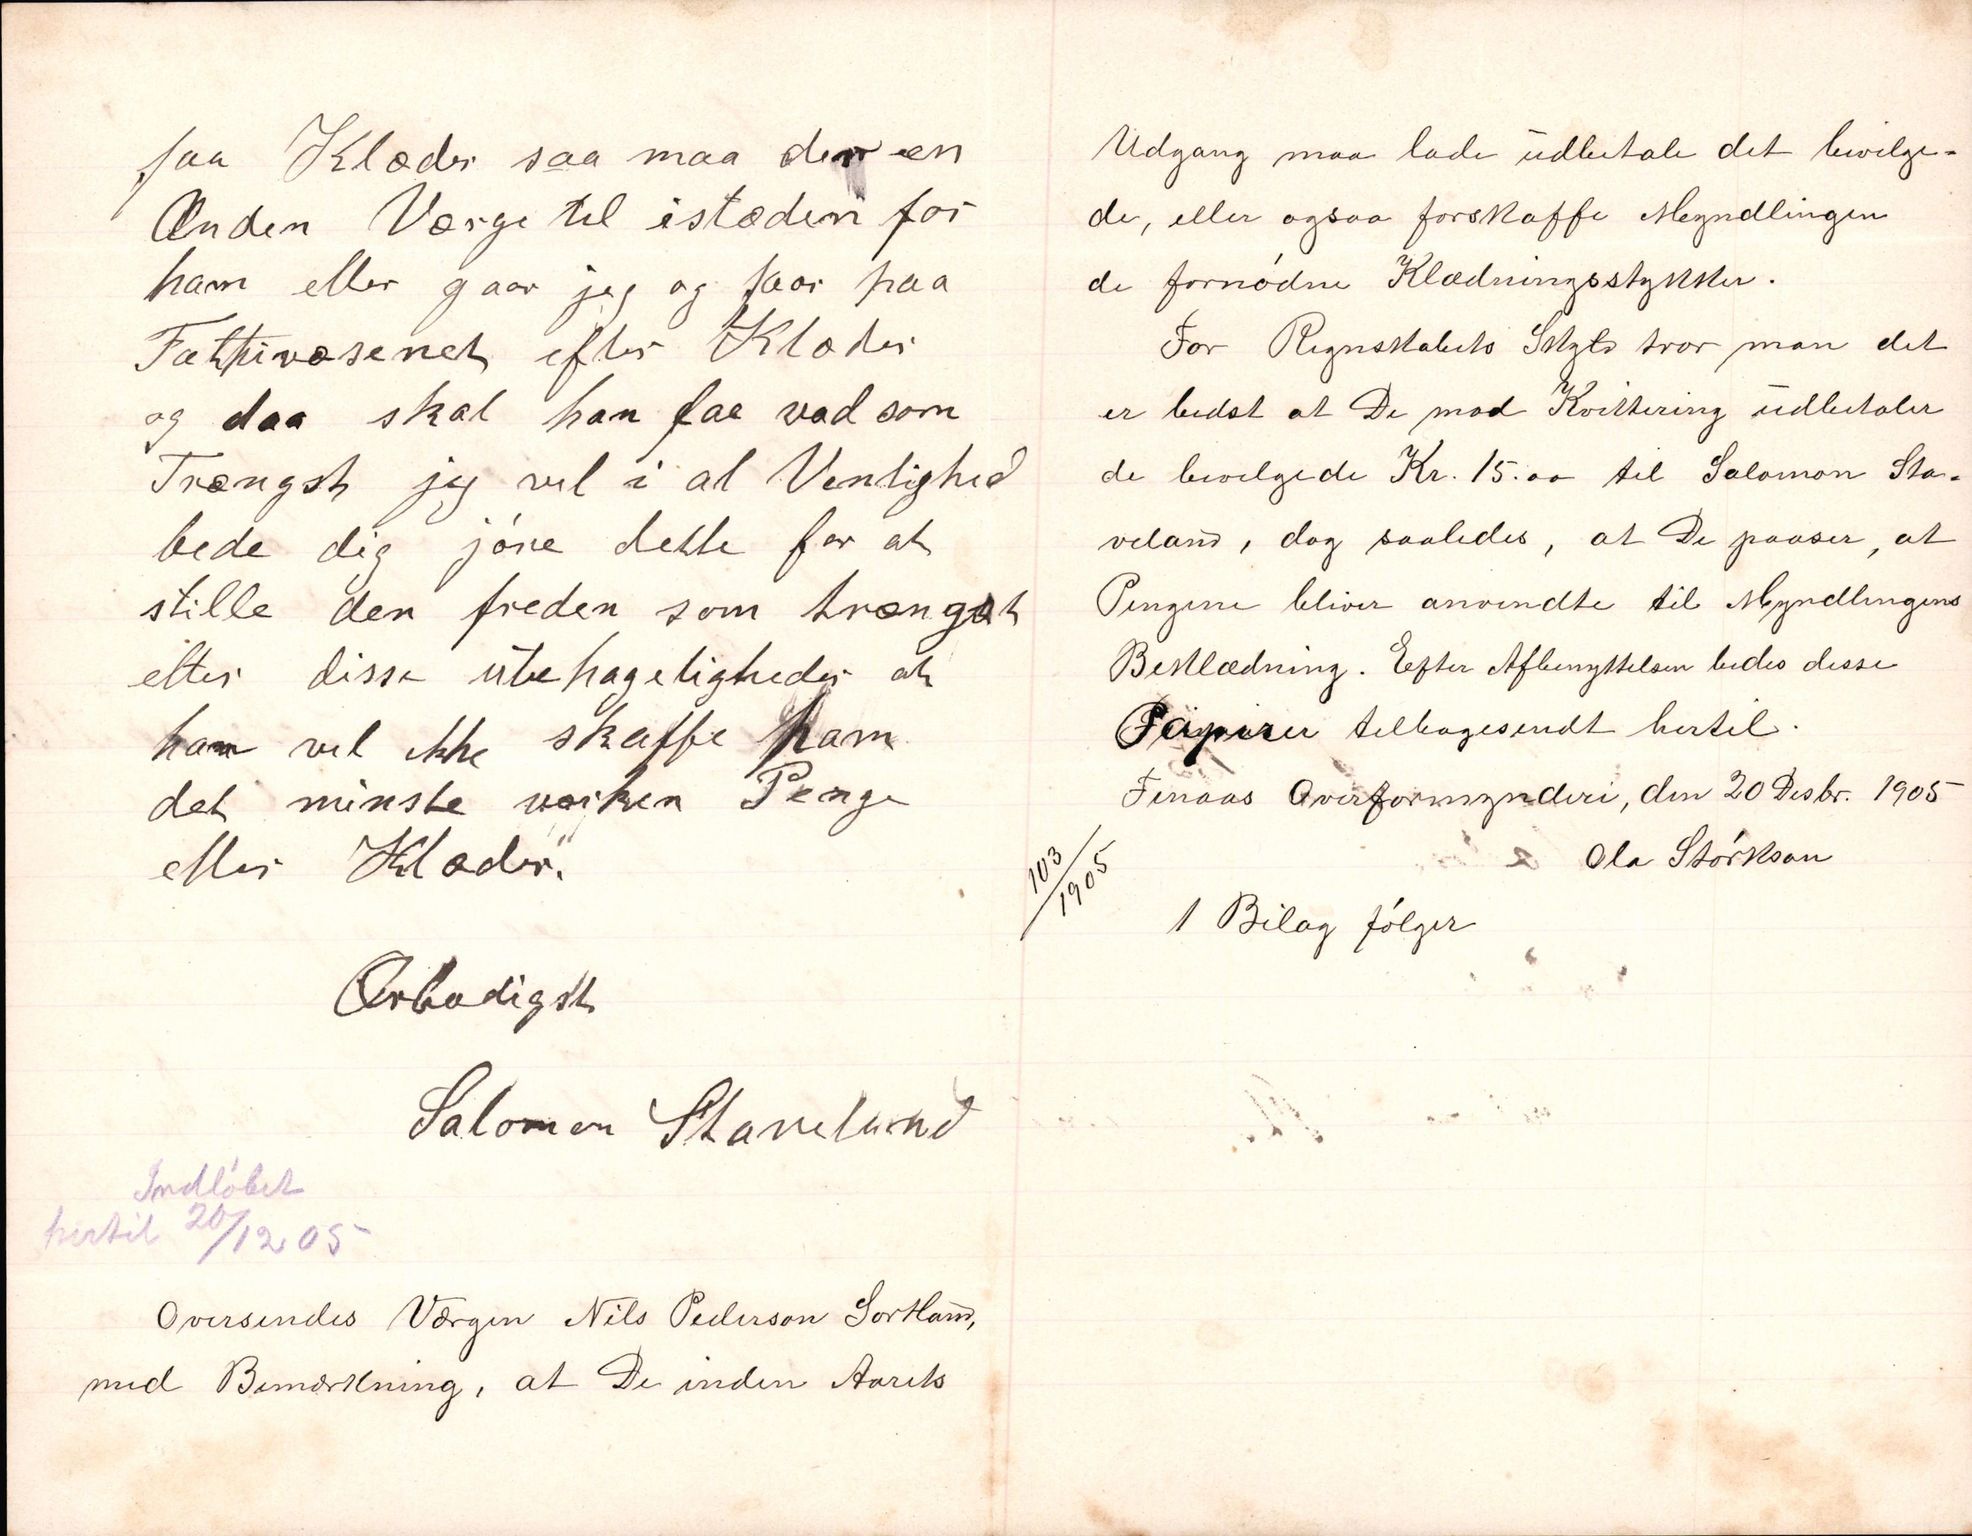 faa Klæder saa maa der en
Anden Værge til istæden for
ham eller gaar jeg og faar paa
Fattivæsenet efter Klæder
og daa skal han faa vad som
Trængst jeg vil i al Venlighed
bede dig jöre dette for at
stille den freden som trængst
etter disse ubehageligheder at
han vil ikke skaffe ham
det minste værken Penge
eller Klæder.
Ærbødigst
Salomon Staveland
Indlöbet
hertil 20/12 05
Oversendes Værgen Nils Pederson Sortland,
med Bemærkning, at De inden Aarets
Udgang maa lade udbetale det bevilge-
de, eller ogsaa forskaffe Myndlingen
de fornödne Klædningsstykker.
For Regnskabets Skyld tror man det
er bedst at De mod Kvittering udbetaler
de bevilgede Kr. 15.00 til Salomon Sta-
veland, dog saaledes, at De paaser, at
Pengene bliver anvendte til Myndlingens
Beklædning. Efter Afbenyttelsen bedes disse
Papirer tilbagesendt hertil.
Finaas Overformynderi, den 20 Desbr. 1905
Ola Störkson
103/1905
1 Bilag fölger